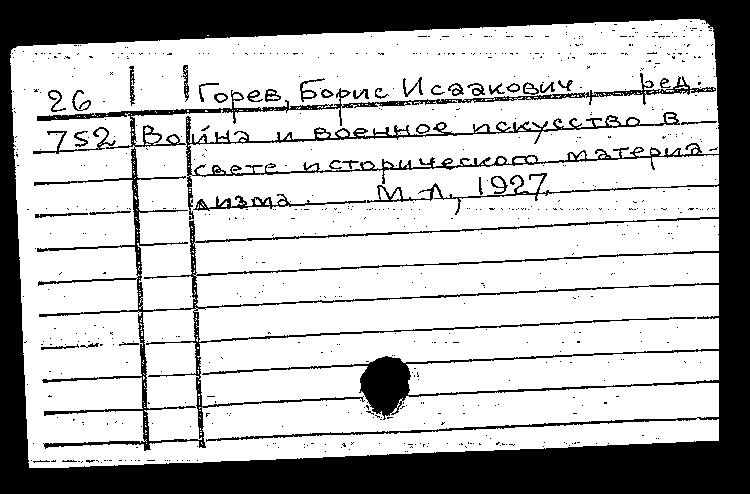 26 Горев, Борис Исаакович, ред.
752 Война и военное искусство в
свете исторического материа-
лизма. М.-Л., 1927.